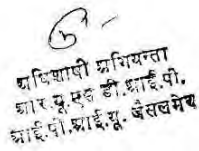 अधिशाषी अभियन्ता
आर.यू.एस डी.आई.पी.
आई.पी.आई.यू. जैसलमेर